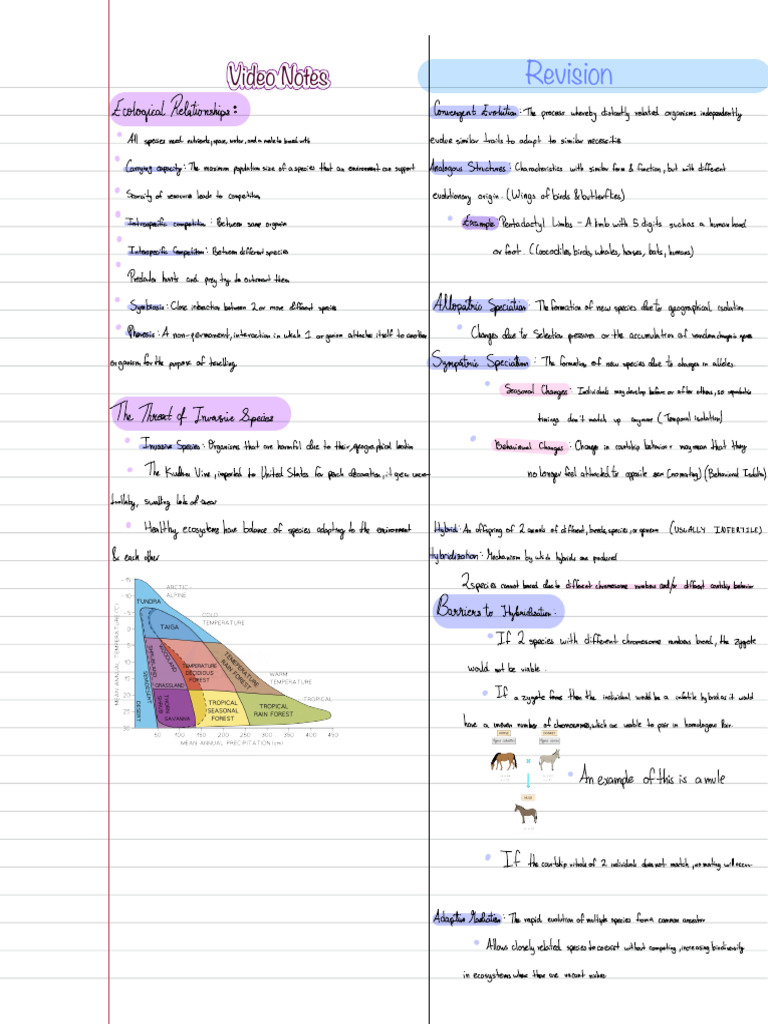 Video Notes
Ecological Relationships:
All species need nutrients, space, water, and a mate to breed with
Carrying capacity: The maximum population size of a species that an environment can support
Scarcity of resources leads to competition
Intraspecific competition: Between same organism
Interspecific Competition: Between different species
Predator hunts and prey try to outsmart them
Symbiosis: Close interaction between 2 or more different species
Phoresis: A non-permanent, interaction in which 1 organism attaches itself to another
organism for the purpose of travelling.
The Threat of Invasive Species
Invasive Species: Organisms that are harmful due to their geographical location
The Kudzu Vine, imported to United States for porch decoration, it grew uncon-
trollably, swallowing lots of areas
Healthy ecosystems have balance of species adapting to the environment
& each other
MEAN ANNUAL TEMPERATURE (°C)
-15
-10
-5
0
5
10
15
20
25
30
ARCTIC-
ALPINE
TUNDRA
COLD
TEMPERATURE
TAIGA
WOODLAND
SHRUBLAND
SEMIDESERT
DESERT
GRASSLAND
TEMPERATURE
DECIDOUS
FOREST
TEMPERATURE
RAIN FOREST
WARM
TEMPERATURE
THORN
SCRUB
SAVANNA
TROPICAL
SEASONAL
FOREST
TROPICAL
RAIN FOREST
TROPICAL
50 100 150 200 250 300 350 400 450
MEAN ANNUAL PRECIPITATION (cm)
Revision
Convergent Evolution: The process whereby distantly related organisms independently
evolve similar traits to adapt to similar necessities
Analogous Structures: Characteristics with similar form & function, but with different
evolutionary origin. (Wings of birds & butterflies)
Example: Pentadactyl Limbs - A limb with 5 digits such as a human hand
or foot. (Crocodiles, birds, whales, horses, bats, humans)
Allopatric Speciation: The formation of new species due to geographical isolation
Changes due to Selection pressures or the accumulation of random changes genes
Sympatric Speciation: The formation of new species due to changes in alleles
Seasonal Changes: Individuals may develop before or after others, so reproductive
timings don't match up anymore (Temporal isolation)
Behavioural Changes: Change in courtship behaviour may mean that they
no longer feel attracted to opposite sex (no mating) (Behavioral Isolation)
Hybrid: An offspring of 2 animals of different, breeds, species, or genera (USUALLY INFERTILE)
Hybridization: Mechanism by which hybrids are produced
2 species cannot breed due to different chromosome numbers and/or different courtship behavior
Barriers to Hybridization:
If 2 species with different chromosome numbers breed, the zygote
would not be viable.
If a zygote forms then the individual would be a infertile hybrid as it would
have a uneven number of chromosomes, which are unable to pair in homologous pair.
x
An example of this is a mule
If the courtship rituals of 2 individuals does not match, no mating will occur.
Adaptive Radiation: The rapid evolution of multiple species from a common ancestor
Allows closely related species to coexist without competing, increasing biodiversity
in ecosystems where there are vacant niches